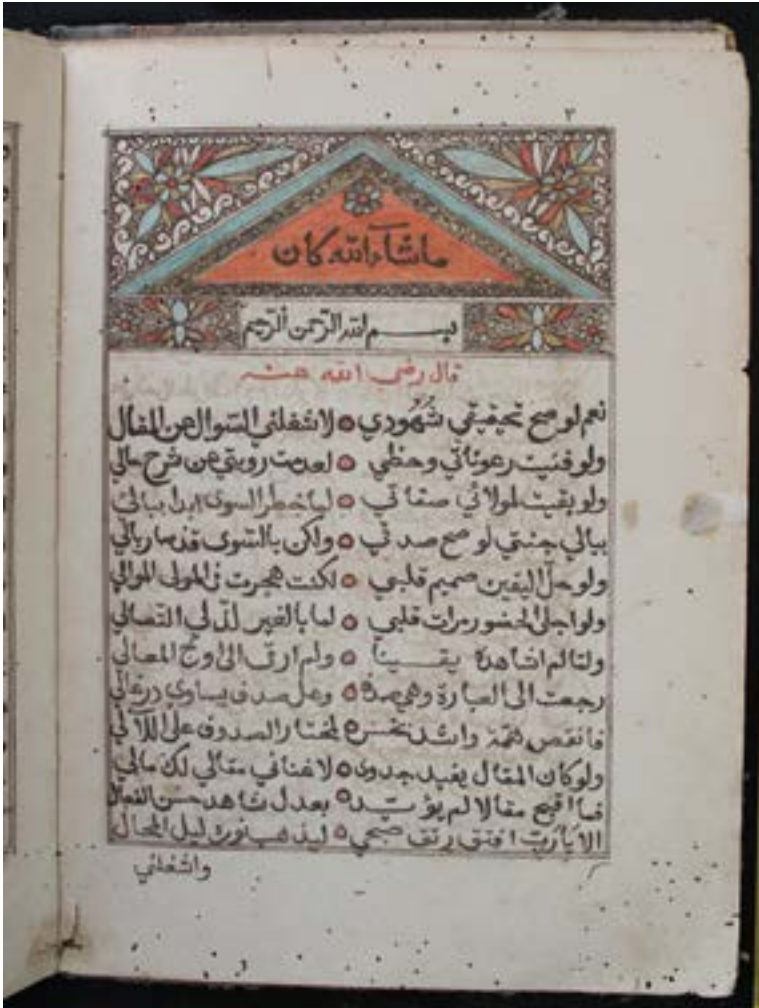 ٣
ماشآء الله كان
بسم الله الرحمن الرحيم
قال رضي الله عنه
نعم لو صح تحقيقي شهودي لاشغلني السوال عن المقال
ولو فنيت رعوناتي وحظي لعدمت رويتي عن شرح حالي
ولو بقيت لمولائي صفاتي لما خطر السوى ابدا ببالي
ببالي جنتي لو صح صدقي ولكن بالسوى قد صار بالي
ولو حل اليقين صميم قلبي لكنت هجرت في المولى الموالي
ولو اجلى الحضور مرات قلبي لما بالغير لذ لي التعالي
ولما لم اشاهده يقينا ولم ارق الى اوج المعالي
رجعت الى العبارة وهي صدف وهل صدف يساوي در غالي
فانقص همة واشد خسر لمختار الصدوف على اللآلي
ولو كان المقال يفيد جدوى لاغناني مقالي لك مالي
فما اقبح مقالا لم يؤيد بعدل شاهد حسن الفعال
الا يارب افتق رتق صبحي ليذهب نوره ليل المحال
واشغلني